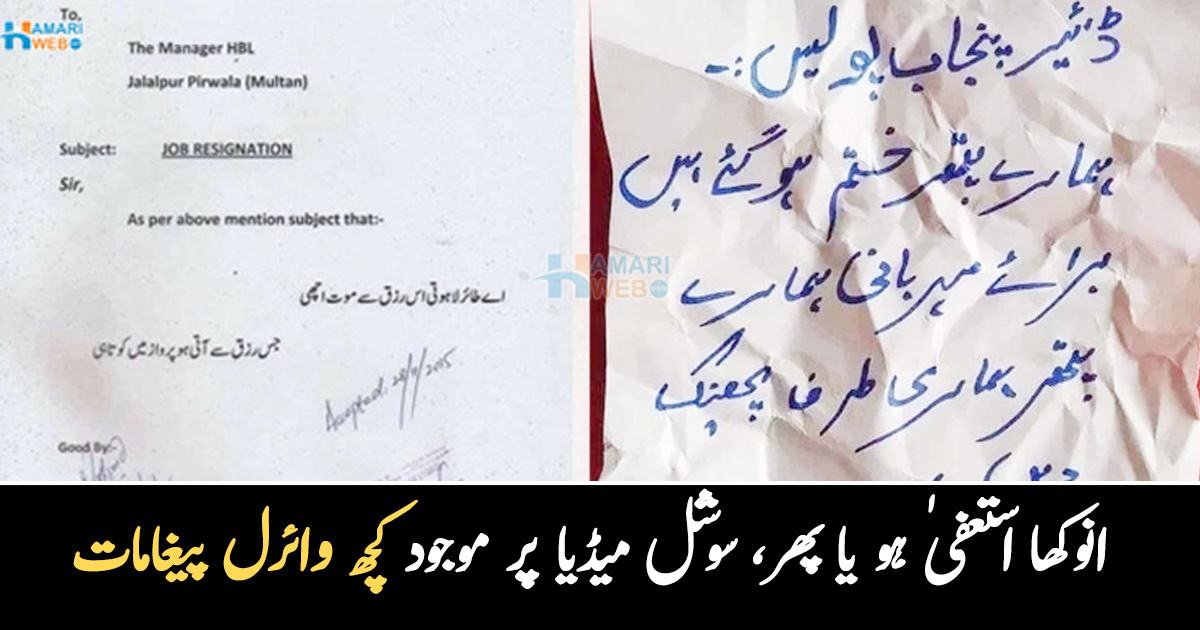 HAMARI
WEB
To,
The Manager HBL
Jalalpur Pirwala (Multan)
Subject: JOB RESIGNATION
Sir,
As per above mention subject that:-
اے طائر لاہوتی اس رزق سے موت اچھی
جس رزق سے آتی ہو پرواز میں کوتاہی
Accepted. 28/11/2015
Good By:-
ڈئیر پنجاب پولیس :-
ہمارے پتھر ختم ہو گئے ہیں
برائے مہربانی ہمارے
پتھر ہماری طرف پھینک
HAMARI
WEB
انوکھا استعفیٰ ہو یا پھر، سوشل میڈیا پر موجود کچھ وائرل پیغامات